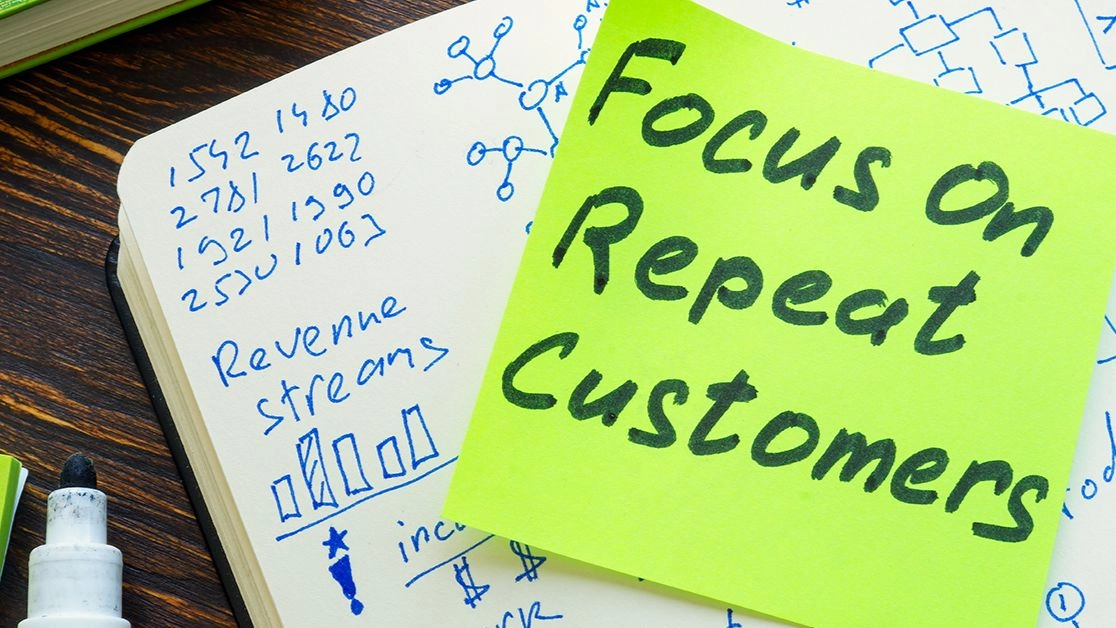 1542 1480
2781 2622
1921 1990
2530 1063
Revenue
streams
$ $
Focus On
Repeat
Customers
1